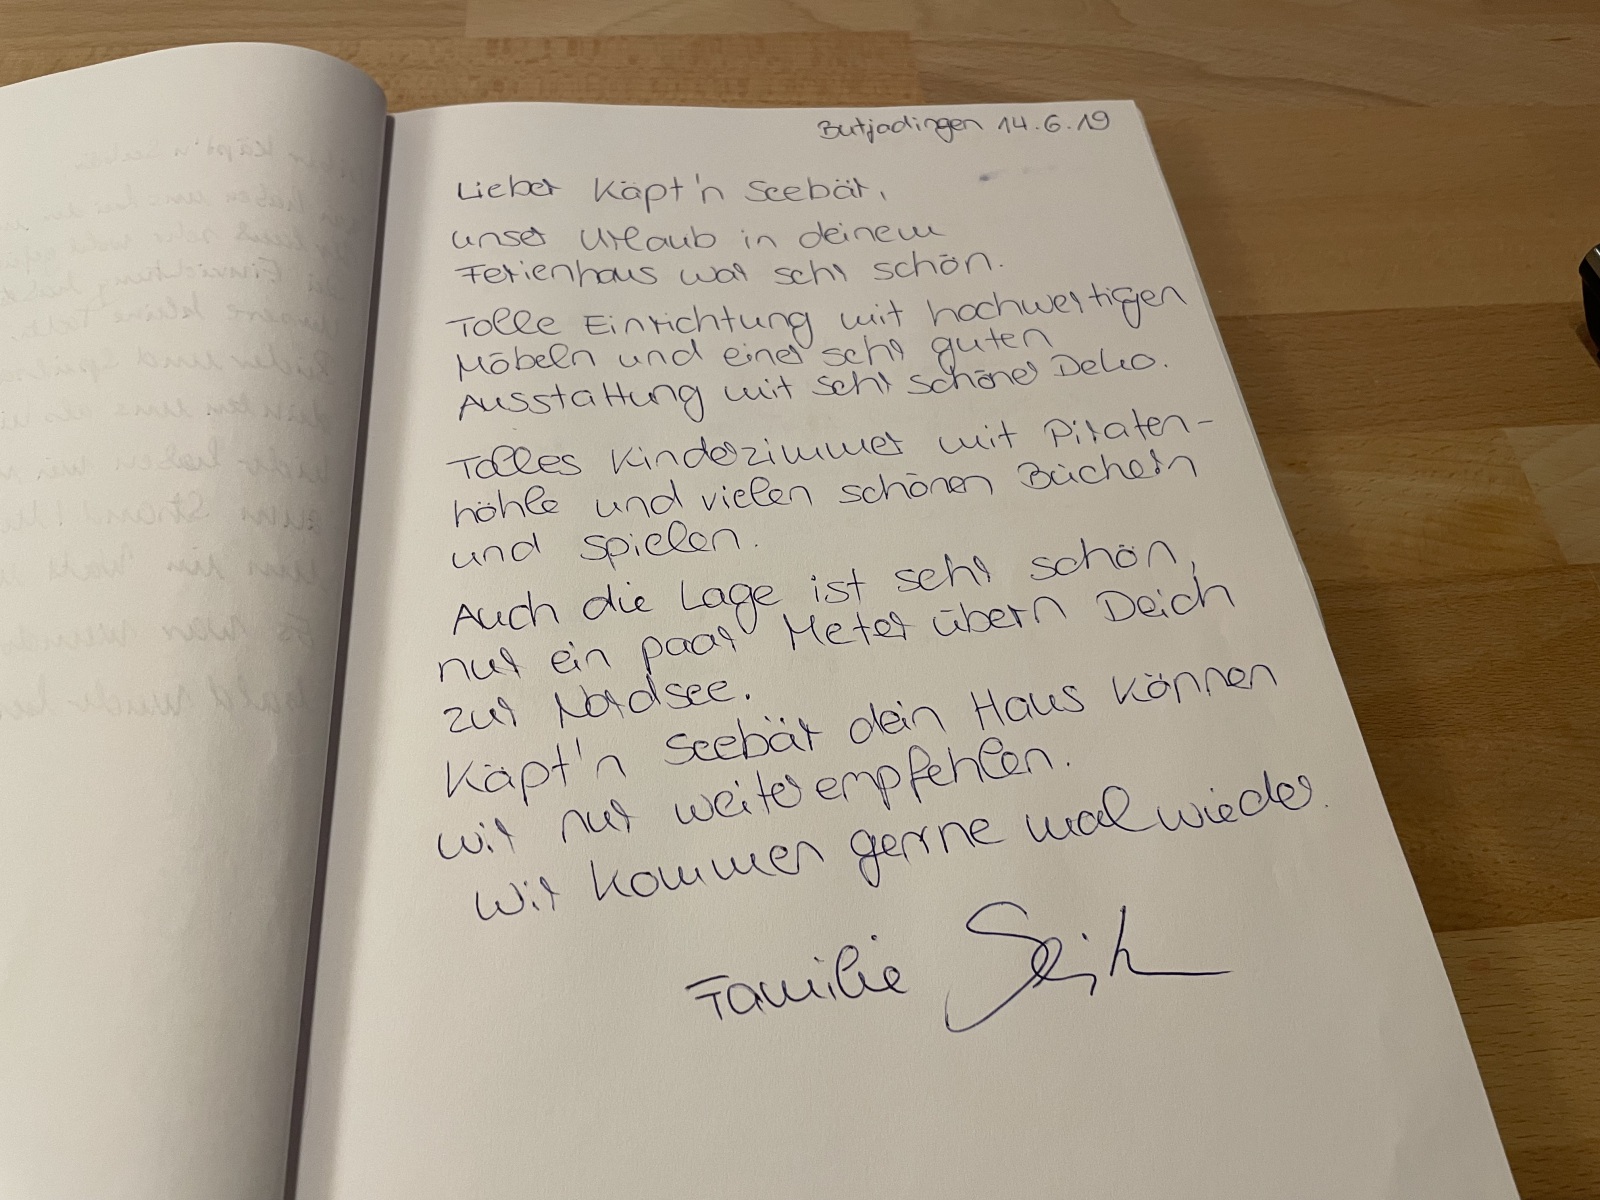 Butjadingen 14.6.19
Lieber Käpt'n Seebär,
unser Urlaub in deinem
Ferienhaus war sehr schön.
Tolle Einrichtung mit hochwertigen
Möbeln und einer sehr guten
Ausstattung mit sehr schöner Deko.
Tolles Kinderzimmer mit Piraten-
höhle und vielen schönen Büchern
und spielen.
Auch die Lage ist sehr schön,
nur ein paar Meter übern Deich
zur Nordsee.
Käpt'n Seebär dein Haus können
wir nur weiterempfehlen.
Wir kommen gerne mal wieder.
Familie